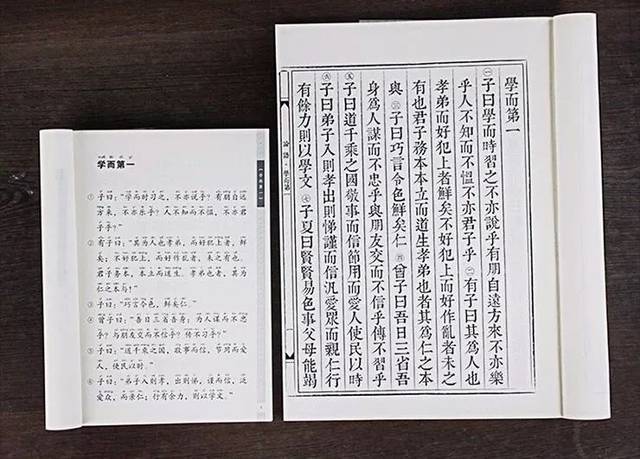 学而第一
① 子曰：“学而时习之，不亦说乎？有朋自远
方来，不亦乐乎？人不知而不愠，不亦君
子乎？”
② 有子曰：“其为人也孝弟，而好犯上者，鲜
矣；不好犯上，而好作乱者，未之有也。
君子务本，本立而道生。孝弟也者，其为
仁之本与！”
③ 子曰：“巧言令色，鲜矣仁。”
④ 曾子曰：“吾日三省吾身：为人谋而不忠
乎？与朋友交而不信乎？传不习乎？”
⑤ 子曰：“道千乘之国，敬事而信，节用而爱
人，使民以时。”
⑥ 子曰：“弟子入则孝，出则悌，谨而信，泛
爱众，而亲仁；行有余力，则以学文。”
學而第一
㊀子曰學而時習之不亦說乎有朋自遠方來不亦樂
乎人不知而不慍不亦君子乎 ㊁有子曰其爲人也
孝弟而好犯上者鮮矣不好犯上而好作亂者未之
有也君子務本本立而道生孝弟也者其爲仁之本
與 ㊂子曰巧言令色鮮矣仁 ㊃曾子曰吾日三省吾
身爲人謀而不忠乎與朋友交而不信乎傳不習乎
㊄子曰道千乘之國敬事而信節用而愛人使民以時
㊅子曰弟子入則孝出則悌謹而信汎愛眾而親仁行
有餘力則以學文 ㊆子夏曰賢賢易色事父母能竭
論語 學而第一